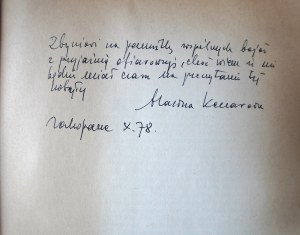 Zbyniowi na pamiątkę wspólnych bojów
z przyjaźnią ofiarowuję, choć wiem że nie
będzie miał czasu na poczytanie tej
Halina
Zakopane X.78.